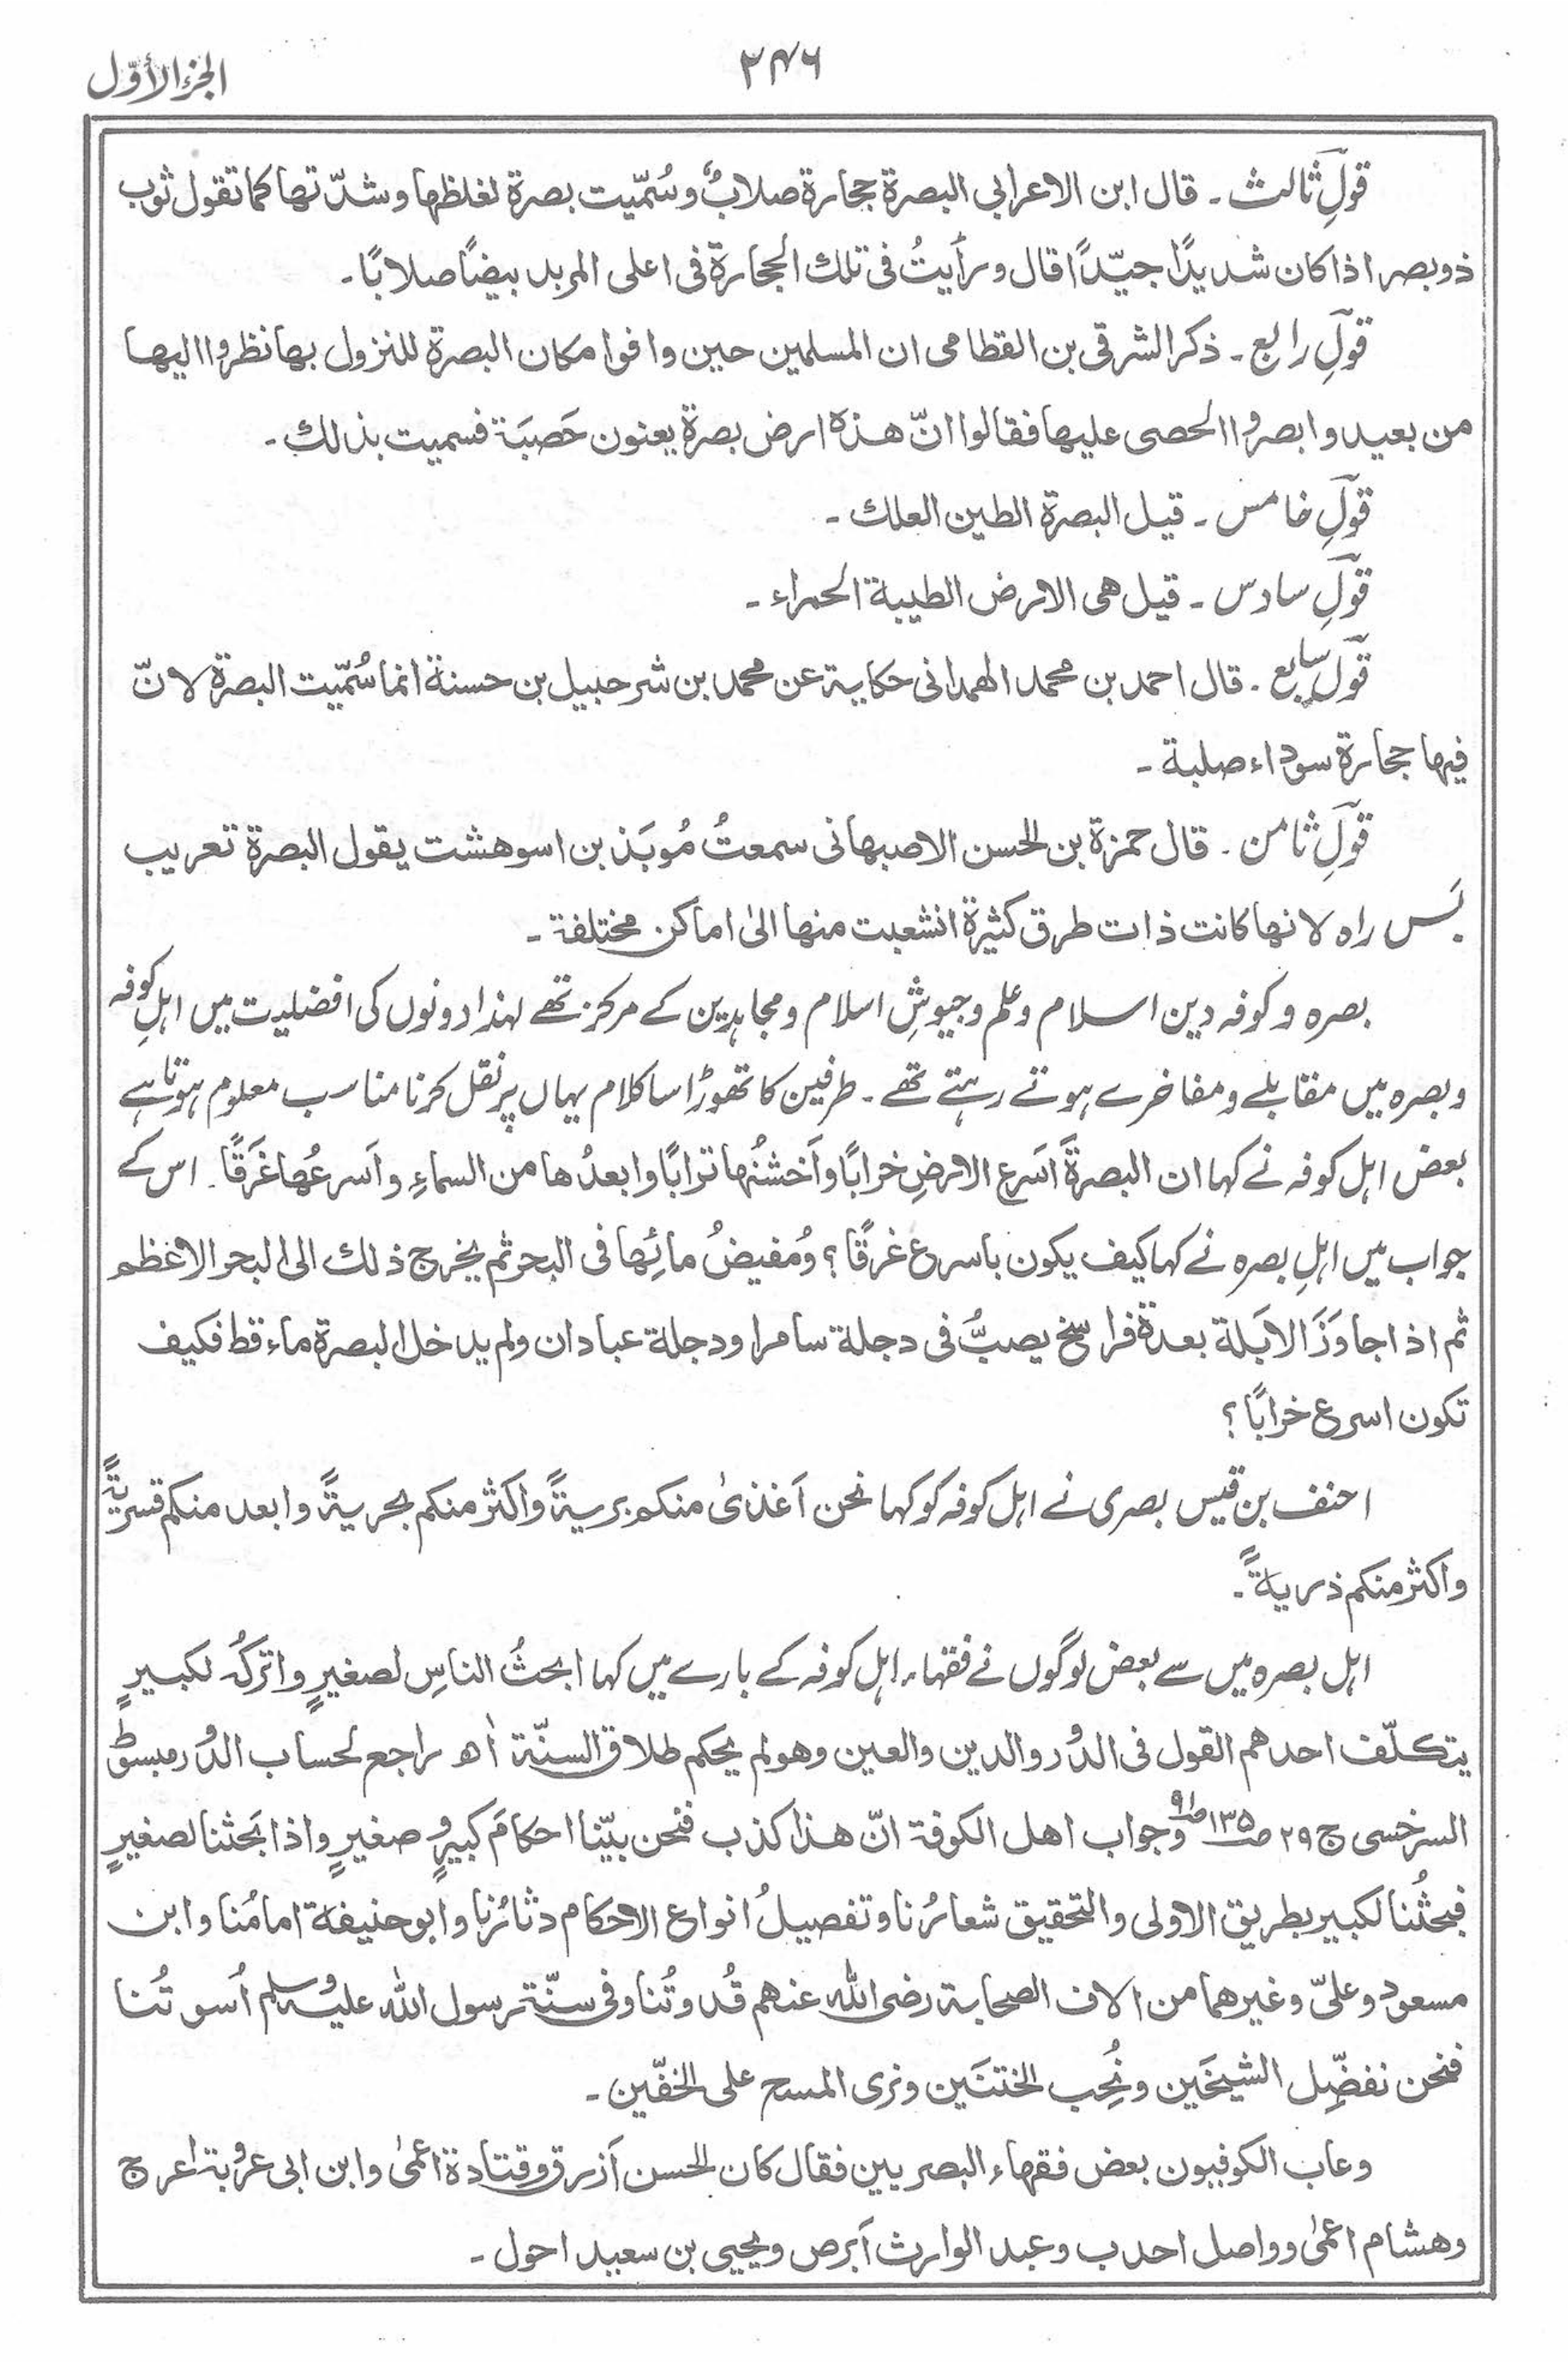 الجزء الأوّل
۲۴۶
قولِ ثالث ۔ قال ابن الاعرابی البصرة حجارة صلابٌ وسُمّیت بصرة لغلظہا وشدّتہا کما تقول ثوب
ذو بصر اذا کان شدیدًا جیّدًا قال ورأیتُ فی تلك الحجارة فی اعلی المربد بیضًا صلابًا۔
قولِ رابع ۔ ذکر الشرقی بن القطامی ان المسلمین حین وافوا مکان البصرة للنزول بہا نظروا الیہا
من بعید وابصروا الحصی علیہا فقالوا انّ ھذہ ارض بصرة یعنون حَصبَة فسمیت بذلك ۔
قولِ خامس ۔ قیل البصرة الطین العلك ۔
قولِ سادس ۔ قیل ھی الارض الطیبة الحمراء ۔
قول سابع ۔ قال احمد بن محمد الھمدانی حکایة عن محمد بن شرحبیل بن حسنة انما سُمّیت البصرة لانّ
فیہا حجارة سوداء صلبة ۔
قولِ ثامن ۔ قال حمزة بن الحسن الاصبھانی سمعتُ مُوبَذ بن اسوھشت یقول البصرة تعریب
بَس راہ لانھا کانت ذات طرق کثیرة انشعبت منھا الیٰ اماکن مختلفة ۔
بصرہ و کوفہ دین اسلام و علم و جیوشِ اسلام و مجاہدین کے مرکز تھے لہٰذا دونوں کی افضلیت میں اہلِ کوفہ
و بصرہ میں مقابلے و مفاخرے ہوتے رہتے تھے ۔ طرفین کا تھوڑا سا کلام یہاں پر نقل کرنا مناسب معلوم ہوتا ہے
بعض اہل کوفہ نے کہا ان البصرةَ اَسَرع الارضِ خرابًا واَخشنُہا ترابًا وابعدُھا من السماءِ واَسرعُھا غَرَقًا ۔ اس کے
جواب میں اہلِ بصرہ نے کہا کیف یکون باسرع غرقًا ؟ ومُفیضُ مائِھا فی البحر ثم یخرج ذلك الی البحر الاعظم
ثم اذا جاوَزَ الابلة بعدة فراسخ یصبُّ فی دجلة سامرا ودجلة عبادان ولم یدخل البصرة ماء قط فکیف
تکون اسرع خرابًا ؟
احنف بن قیس بصری نے اہل کوفہ کو کہا نحن اَغذیٰ منکم بریةً واکثر منکم بحریةً وابعد منکم قسریةً
واکثر منکم ذریةً ۔
اہل بصرہ میں سے بعض لوگوں نے فقہاء اہل کوفہ کے بارے میں کہا ابحثُ الناسِ لصغیرٍ واترکُہ لکبیرٍ
یتکلّف احدھم القول فی الدُور والدین والعین وھو لم یحکم طلاق السنّة اھ راجع لحساب الدُور مبسوط
السرخسی ج ۲۹ ص ۱۳۵ ص ۹۱ وجواب اھل الکوفة انّ ھذا کذب فنحن بیّنا احکامَ کبیرٍ وصغیرٍ واذا بَحثنا لصغیرٍ
فبحثُنا لکبیر بطریق الاولی والتحقیق شعارُنا وتفصیلُ انواع الاحکام دثائرُنا وابوحنیفة امامُنا وابن
مسعود وعلیّ وغیرھما من الاف الصحابة رضی اللہ عنھم قُدوتُنا وفی سنّة رسول اللہ علیہ وسلم اُسوتُنا
فنحن نفضِّل الشیخَین ونُحِب الختنَین ونری المسح علی الخفّین ۔
وعاب الکوفیون بعض فقہاء البصریین فقال کان الحسن اَزرق وقتادة اعمیٰ وابن ابی عروبة اعرج
وھشام اعمیٰ وواصل احدب وعبد الوارث اَبرص ویحیی بن سعید احول ۔